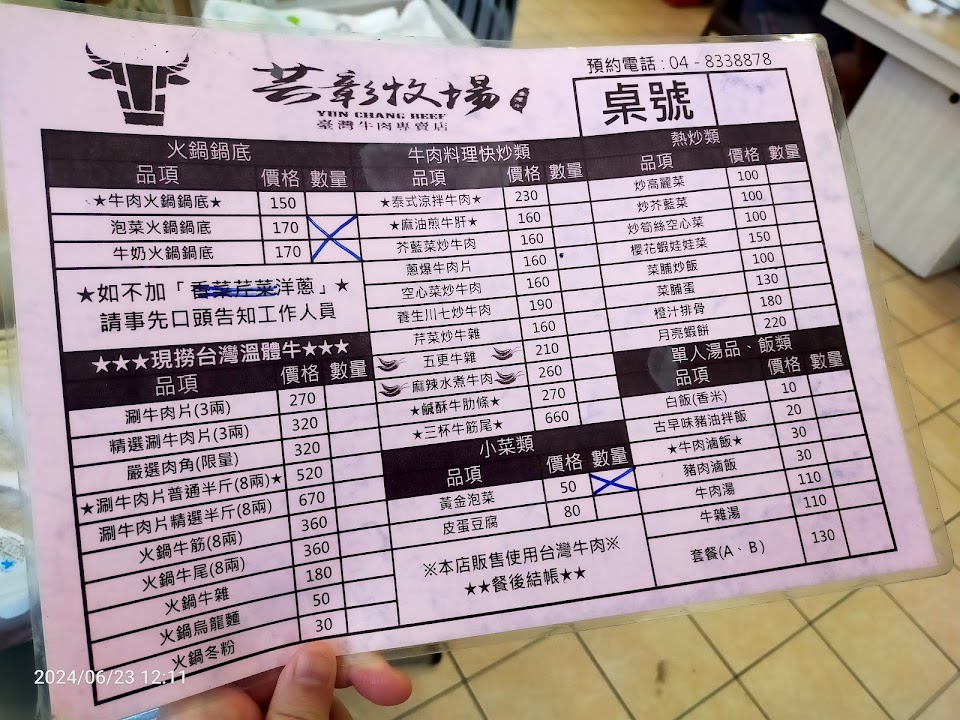 芸彰牧場
YUN CHANG BEEF
臺灣牛肉專賣店
預約電話 : 04 - 8338878
桌號
火鍋鍋底
品項 價格 數量
★牛肉火鍋鍋底★ 150
泡菜火鍋鍋底 170
牛奶火鍋鍋底 170
★如不加「香菜芹菜洋蔥」★
請事先口頭告知工作人員
★★★現撈台灣溫體牛★★★
品項 價格 數量
涮牛肉片(3兩) 270
精選涮牛肉片(3兩) 320
嚴選肉角(限量) 320
★涮牛肉片普通半斤(8兩)★ 520
涮牛肉片精選半斤(8兩) 670
火鍋牛筋(8兩) 360
火鍋牛尾(8兩) 360
火鍋牛雜 180
火鍋烏龍麵 50
火鍋冬粉 30
牛肉料理快炒類
品項 價格 數量
★泰式涼拌牛肉★ 230
★麻油煎牛肝★ 160
芥藍菜炒牛肉 160
蔥爆牛肉片 160
空心菜炒牛肉 160
養生川七炒牛肉 190
芹菜炒牛雜 160
五更牛雜 210
麻辣水煮牛肉 260
★鹹酥牛肋條★ 270
★三杯牛筋尾★ 660
小菜類
品項 價格 數量
黃金泡菜 50
皮蛋豆腐 80
※本店販售使用台灣牛肉※
★★餐後結帳★★
熱炒類
品項 價格 數量
炒高麗菜 100
炒芥藍菜 100
炒筍絲空心菜 100
櫻花蝦娃娃菜 150
菜脯炒飯 100
菜脯蛋 130
橙汁排骨 180
月亮蝦餅 220
單人湯品、飯類
品項 價格 數量
白飯(香米) 10
古早味豬油拌飯 20
★牛肉滷飯★ 30
豬肉滷飯 30
牛肉湯 110
牛雜湯 110
套餐(A、B) 130
2024/06/23 12:11